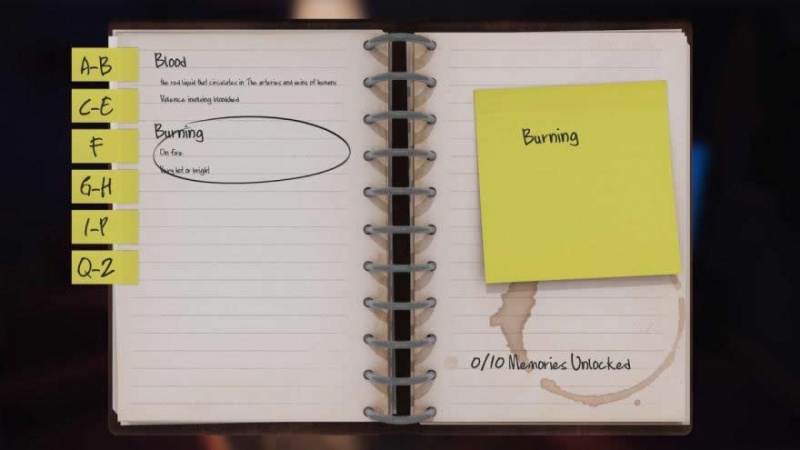 A-B
C-E
F
G-H
I-P
Q-Z
Blood
the red liquid that circulates in The arteries and veins of humans
Violence involving bloodshed
Burning
On fire
Very hot or bright
Burning
0/10 Memories Unlocked